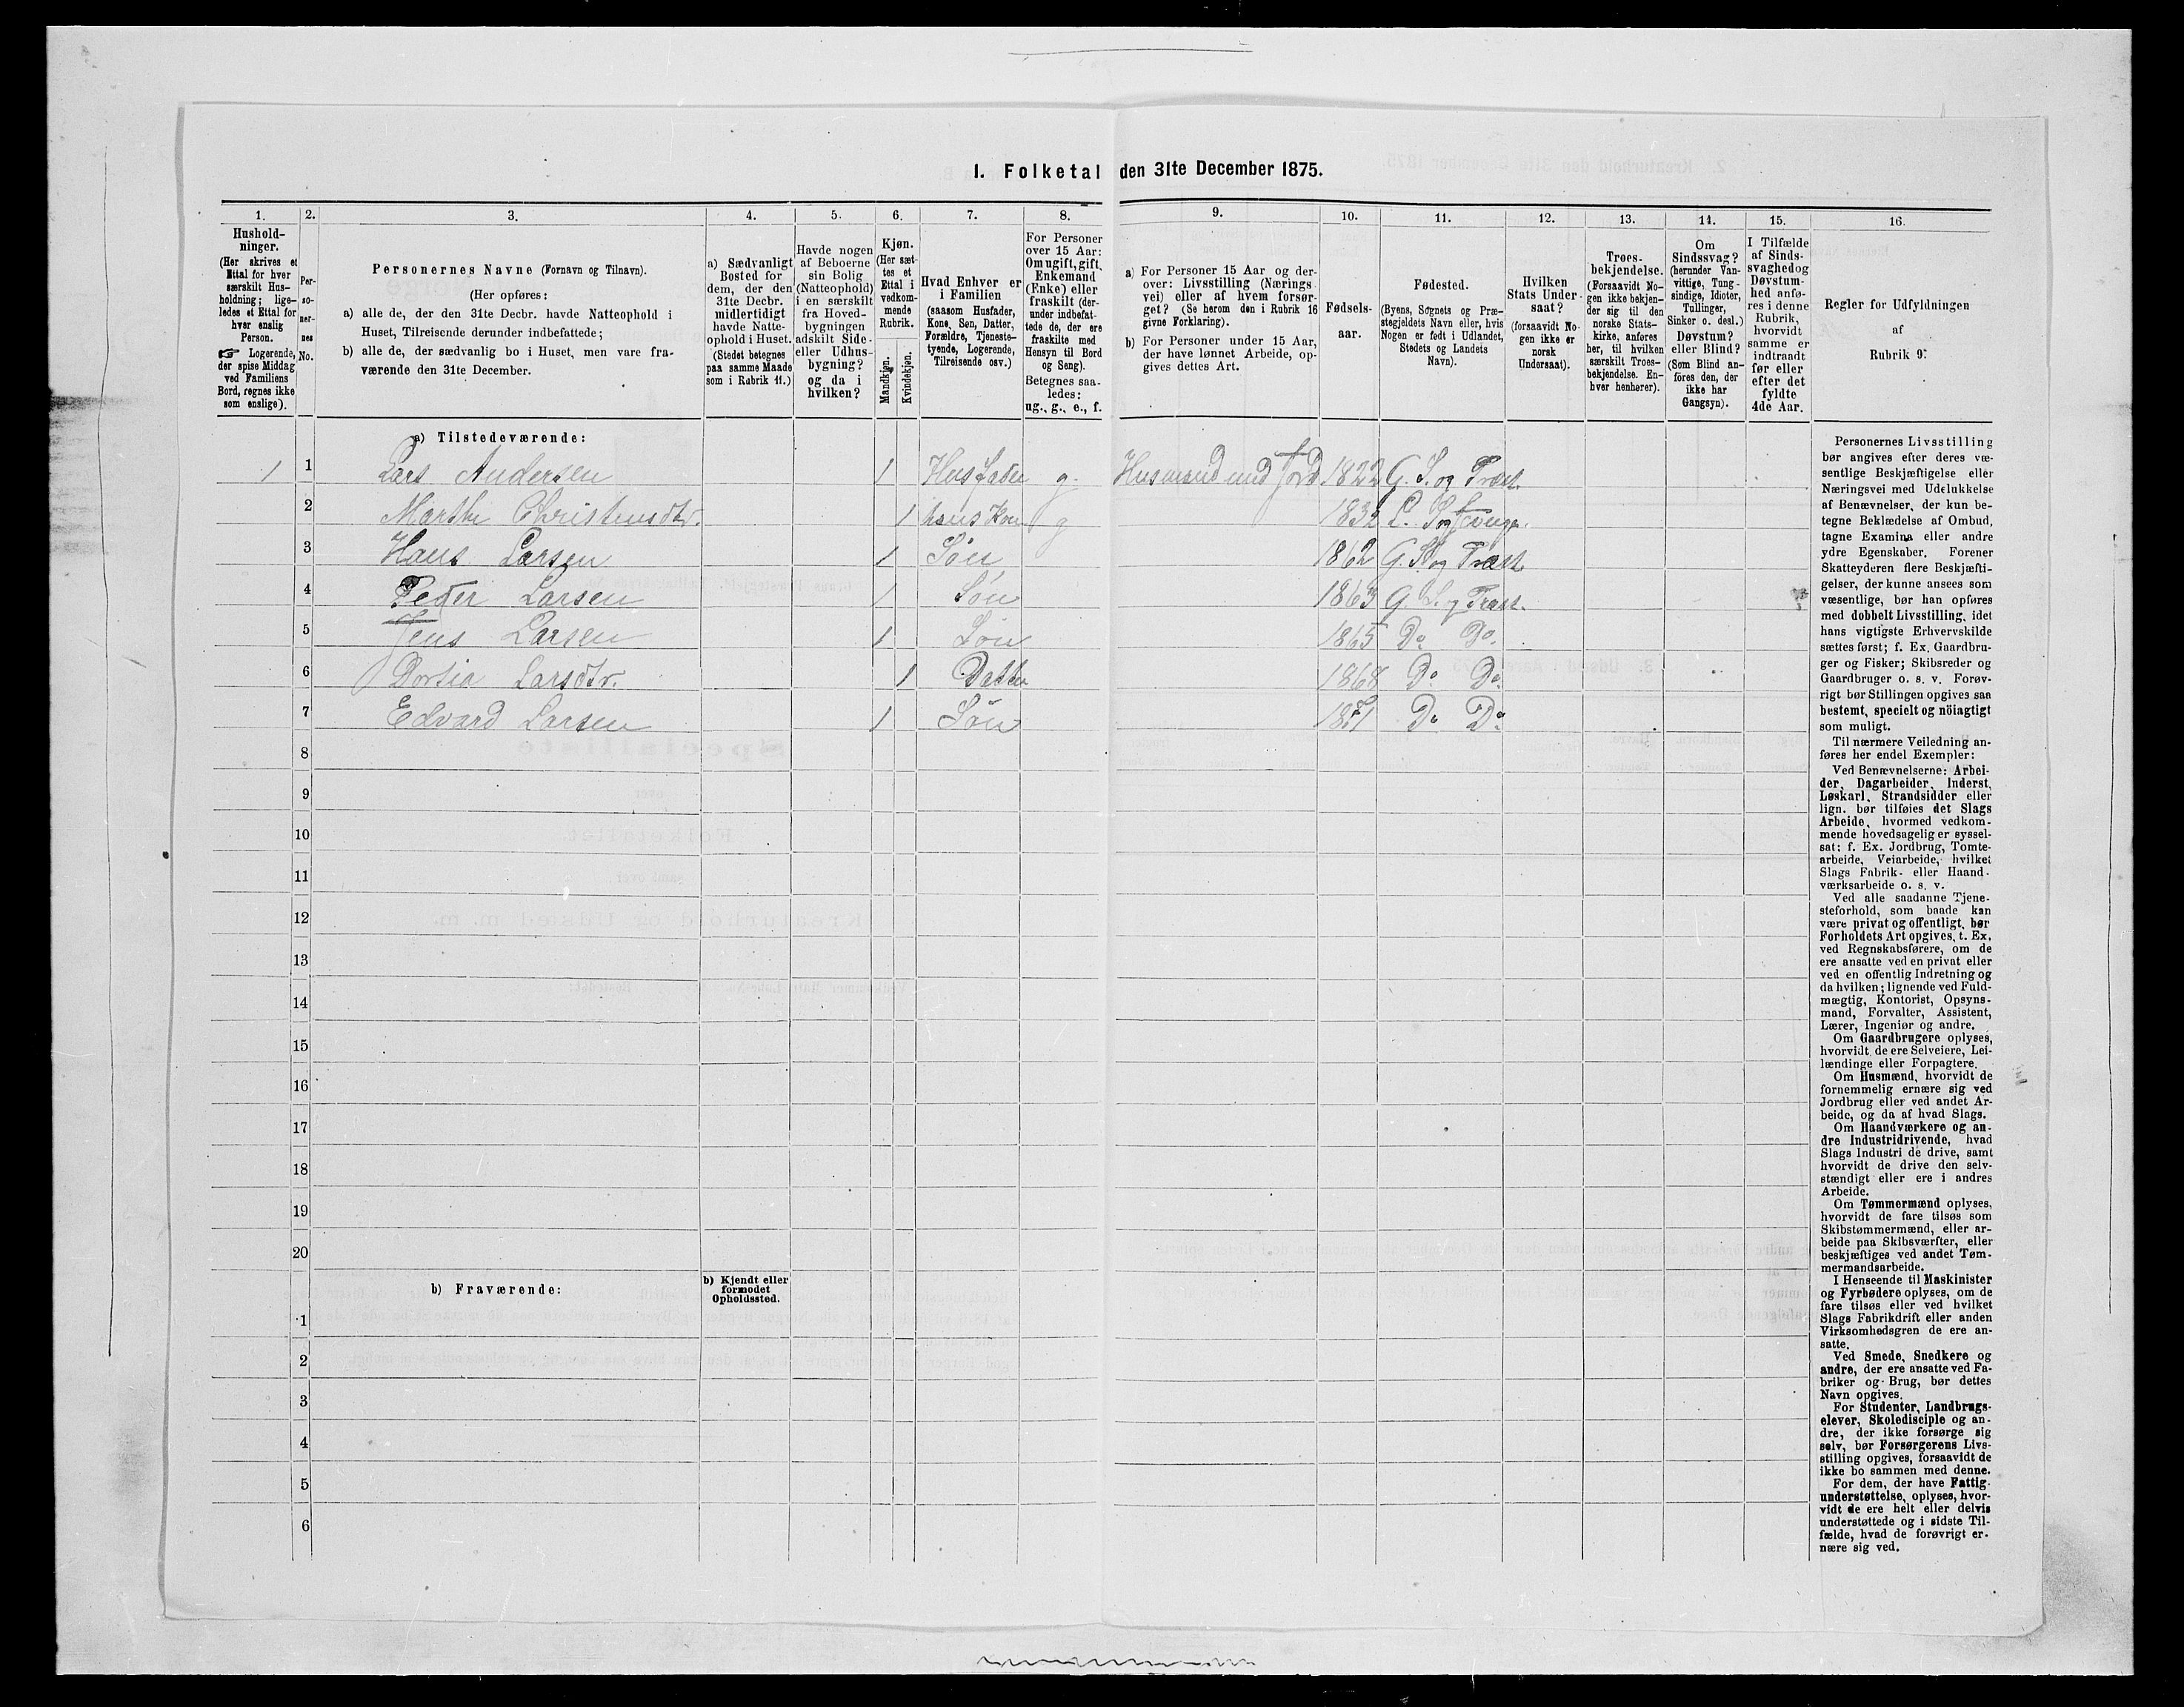 1. Folketal den 31te December 1875.
1. 2. 3. 4. 5. 6. 7. 8. 9. 10. 11. 12. 13. 14. 15. 16.
Hushold-
ninger.
(Her skrives et
Ettal for hver
særskilt Hus-
holdning; lige-
ledes et Ettal for
hver enslig
Person.
☞ Logerende,
der spise Middag
ved Familiens
Bord, regnes ikke
som enslige).
Per-
so-
ner-
nes
No.
Personernes Navne (Fornavn og Tilnavn).
(Her opføres:
a) alle de, der den 31te Decbr. havde Natteophold i
Huset, Tilreisende derunder indbefattede;
b) alle de, der sædvanlig bo i Huset, men vare fra-
værende den 31te December.
a) Sædvanligt
Bosted for
dem, der den
31te Decbr.
midlertidigt
havde Natte-
ophold i Huset.
(Stedet betegnes
paa samme Maade
som i Rubrik 11.)
Havde nogen
af Beboerne
sin Bolig
(Natteophold)
i en særskilt
fra Hoved-
bygningen
adskilt Side-
eller Udhus-
bygning?
og da i
hvilken?
Kjøn.
(Her sæt-
tes et
Ettal i
vedkom-
mende
Rubrik.
Mandkjøn.
Kvindekjøn.
Hvad Enhver er
i Familien
(saasom Husfader,
Kone, Søn, Datter,
Forældre, Tjeneste-
tyende, Logerende,
Tilreisende osv.)
For Personer
over 15 Aar:
Om ugift, gift,
Enkemand
(Enke) eller
fraskilt (der-
under indbefat-
tede de, der ere
fraskilte med
Hensyn til Bord
og Seng).
Betegnes saa-
ledes:
ug., g., e., f.
a) For Personer 15 Aar og der-
over: Livsstilling (Nærings
vei) eller af hvem forsør-
get? (Se herom den i Rubrik 16
givne Forklaring).
b) For Personer under 15 Aar,
der have lønnet Arbeide, op-
gives dettes Art.
Fødsels-
aar.
Fødested.
(Byens, Sognets og Præ-
stegjeldets Navn eller, hvis
Nogen er født i Udlandet,
Stedets og Landets
Navn).
Hvilken
Stats Under-
saat?
(forsaavidt No-
gen ikke er
norsk
Undersaat).
Troes-
bekjendelse.
(Forsaavidt No-
gen ikke bekjen-
der sig til den
norske Stats-
kirke, anføres
her, til hvilken
særskilt Troes-
bekjendelse. En-
hver henhører).
Om
Sindssvag?
(herunder Van-
vittige, Tung-
sindige, Idioter,
Tullinger,
Sinker o. desl.)
Døvstum?
eller Blind?
(Som Blind an-
føres den, der
ikke har
Gangsyn).
I Tilfælde
af Sinds-
svaghed og
Døvstum-
hed anfø-
res i denne
Rubrik,
hvorvidt
samme er
indtraadt
før eller
efter det
fyldte
4de Aar.
Regler for Udfyldningen
af
Rubrik 9.
a) Tilstedeværende:
1 1 Lars Andersen 1 Husfader g. Husmand med Jord 1822 G. S. og Præst.
2 Marthe Christensdtr. 1 hans Kone g 1832
3 Hans Larsen 1 Søn 1862 G. S. og Præst.
4 Peder Larsen 1 Søn 1863 G. S. og Præst.
5 Jens Larsen 1 Søn 1865 Do Do
6 Dortia Larsdtr. 1 Datter 1868 Do Do
7 Edvard Larsen 1 Søn 1871 Do Do
8
9
10
11
12
13
14
15
16
17
18
19
20
b) Fraværende:
b) Kjendt eller
formodet
Opholdssted.
1
2
3
4
5
6
Personernes Livsstilling
bør angives efter deres væ-
sentlige Beskjæftigelse eller
Næringsvei med Udelukkelse
af Benævnelser, der kun be-
tegne Beklædelse af Ombud,
tagne Examina eller andre
ydre Egenskaber. Forener
Skatteyderen flere Beskjæfti-
gelser, der kunne ansees som
væsentlige, bør han opføres
med dobbelt Livsstilling, idet
hans vigtigste Erhvervskilde
sættes først; f. Ex. Gaardbru-
ger og Fisker; Skibsreder og
Gaardbruger o. s. v. Forøv-
rigt bør Stillingen opgives saa
bestemt, specielt og nöiagtigt
som muligt.
Til nærmere Veiledning an-
føres her endel Exempler:
Ved Benævnelserne: Arbei-
der, Dagarbeider, Inderst,
Løskarl, Strandsidder eller
lign. bør tilføies det Slags
Arbeide, hvormed vedkom-
mende hovedsagelig er syssel-
sat; f. Ex. Jordbrug, Tomte-
arbeide, Veiarbeide, hvilket
Slags Fabrik- eller Haand-
værksarbeide o. s. v.
Ved alle saadanne Tjene-
steforhold, som baade kan
være privat og offentligt, bør
Forholdets Art opgives, t. Ex.
ved Regnskabsførere, om de
ere ansatte ved en privat eller
ved en offentlig Indretning og
da hvilken; lignende ved Fuld-
mægtig, Kontorist, Opsyns-
mand, Forvalter, Assistent,
Lærer, Ingeniør og andre.
Om Gaardbrugere oplyses,
hvorvidt de ere Selveiere, Lei-
lændinge eller Forpagtere.
Om Husmænd, hvorvidt de
fornemmelig ernære sig ved
Jordbrug eller ved andet Ar-
beide, og da af hvad Slags.
Om Haandværkere og an-
dre Industridrivende, hvad
Slags Industri de drive, samt
hvorvidt de drive den selv-
stændigt eller ere i andres
Arbeide.
Om Tømmermænd oplyses,
hvorvidt de fare tilsøs som
Skibstømmermænd, eller ar-
beide paa Skibsværfter, eller
beskjæftiges ved andet Tøm-
mermandsarbeide.
I Henseende til Maskinister
og Fyrbødere oplyses, om de
fare tilsøs eller ved hvilket
Slags Fabrikdrift eller anden
Virksomhedsgren de ere an-
satte.
Ved Smede, Snedkere og
andre, der ere ansatte ved Fa-
briker og Brug, bør dettes
Navn opgives.
For Studenter, Landbrugs-
elever, Skoledisciple og an-
dre, der ikke forsørge sig
selv, bør Forsørgerens Livs-
stilling opgives, forsaavidt de
ikke bo sammen med denne.
For dem, der have Fattig-
understøttelse, oplyses, hvor-
vidt de ere helt eller delvis
understøttede og i sidste Til-
fælde, hvad de forøvrigt er-
nære sig ved.